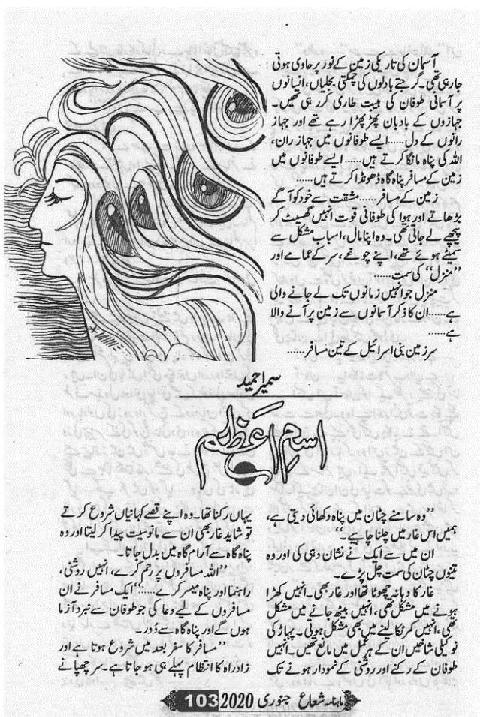 آسمان کی تاریکی زمین کے نور پر حاوی ہوتی
جا رہی تھی۔ گرجتے بادلوں کی چمکتی بجلیاں، انسانوں
پر آسمانی طوفان کی ہیبت طاری کر رہی تھیں۔
جہازوں کے بادبان پھڑپھڑا رہے تھے اور جہاز
رانوں کے دل..... ایسے طوفانوں میں جہاز ران،
اللہ کی پناہ مانگا کرتے ہیں..... ایسے طوفانوں میں
زمین کے مسافر پناہ گاہ ڈھونڈا کرتے ہیں.....
زمین کے مسافر..... مشقت سے خود کو آگے
بڑھاتے اور ہوا کی طوفانی قوت انہیں گھسیٹ کر
پیچھے لے جاتی تھی۔ وہ اپنا مال، اسباب مشکل سے
سمیٹے ہوئے تھے، اپنے چوغے، سر کے عمامے اور
’’منزل‘‘ کی سمت.....
منزل جو انہیں زمانوں تک لے جانے والی
ہے..... ان کا ذکر آسمانوں سے زمین پر آنے والا
ہے.....
سرزمین بنی اسرائیل کے تین مسافر.....
سمیرا حمید
اسمِ اعظم
’’وہ سامنے چٹان میں پناہ دکھائی دیتی ہے،
ہمیں اس غار میں چلنا چاہیے۔‘‘
ان میں سے ایک نے نشان دہی کی اور وہ
تینوں چٹان کی سمت چل پڑے۔
غار کا دہانہ چھوٹا تھا اور غار بھی۔ انہیں کھڑا
ہونے میں مشکل تھی، انہیں بیٹھ جانے میں مشکل
تھی، انہیں کمر ٹکا لینے میں بھی مشکل ہوتی۔ پہاڑ کی
نوکیلی شاخیں ان کے ہر عمل میں مانع تھیں۔ انہیں
طوفان کے رکنے اور روشنی کے نمودار ہونے تک
یہاں رکنا تھا۔ وہ اپنے قصے کہانیاں شروع کرتے
تو شاید غار بھی ان سے مانوسیت پیدا کر لیتا اور وہ
پناہ گاہ سے آرام گاہ میں بدل جاتا۔
’’اللہ مسافروں پر رحم کرے، انہیں روشنی،
راہنما اور پناہ میسر کرے.....‘‘ ایک مسافر نے ان
مسافروں کے لیے دعا کی جو طوفان سے نبرد آزما
ہوں گے اور پناہ گاہ سے دور۔
’’مسافر کا سفر بعد میں شروع ہوتا ہے اور
زاد راہ کا انتظام پہلے ہی ہو جاتا ہے۔ سر چھپانے
ماہنامہ شعاع جنوری 2020 103